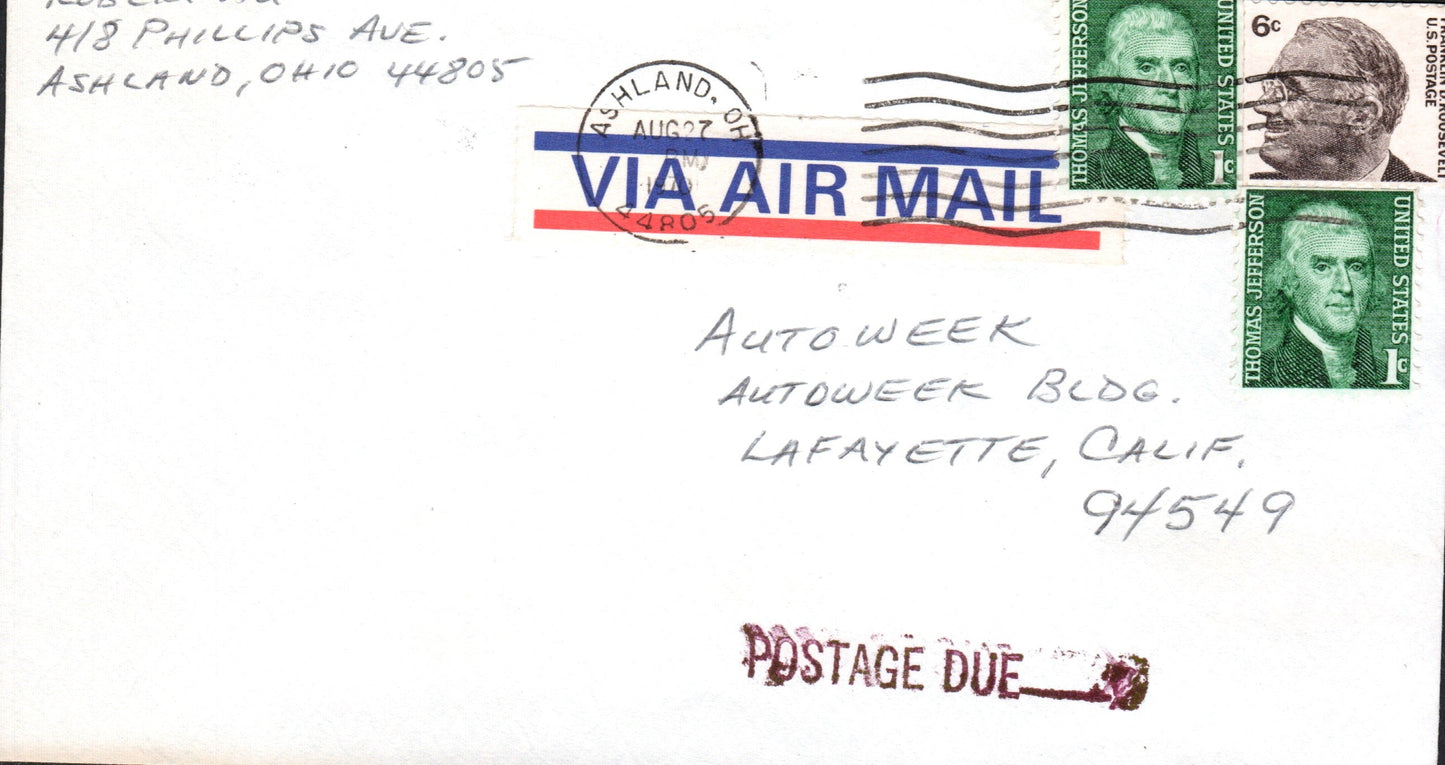 418 PHILLIPS AVE.
ASHLAND, OHIO 44805
ASHLAND, OH
AUG 27
PM
1970
44805
VIA AIR MAIL
THOMAS JEFFERSON
UNITED STATES
1c
6c
FRANKLIN D ROOSEVELT
U.S. POSTAGE
THOMAS JEFFERSON
UNITED STATES
1c
AUTOWEEK
AUTOWEEK BLDG.
LAFAYETTE, CALIF.
94549
POSTAGE DUE